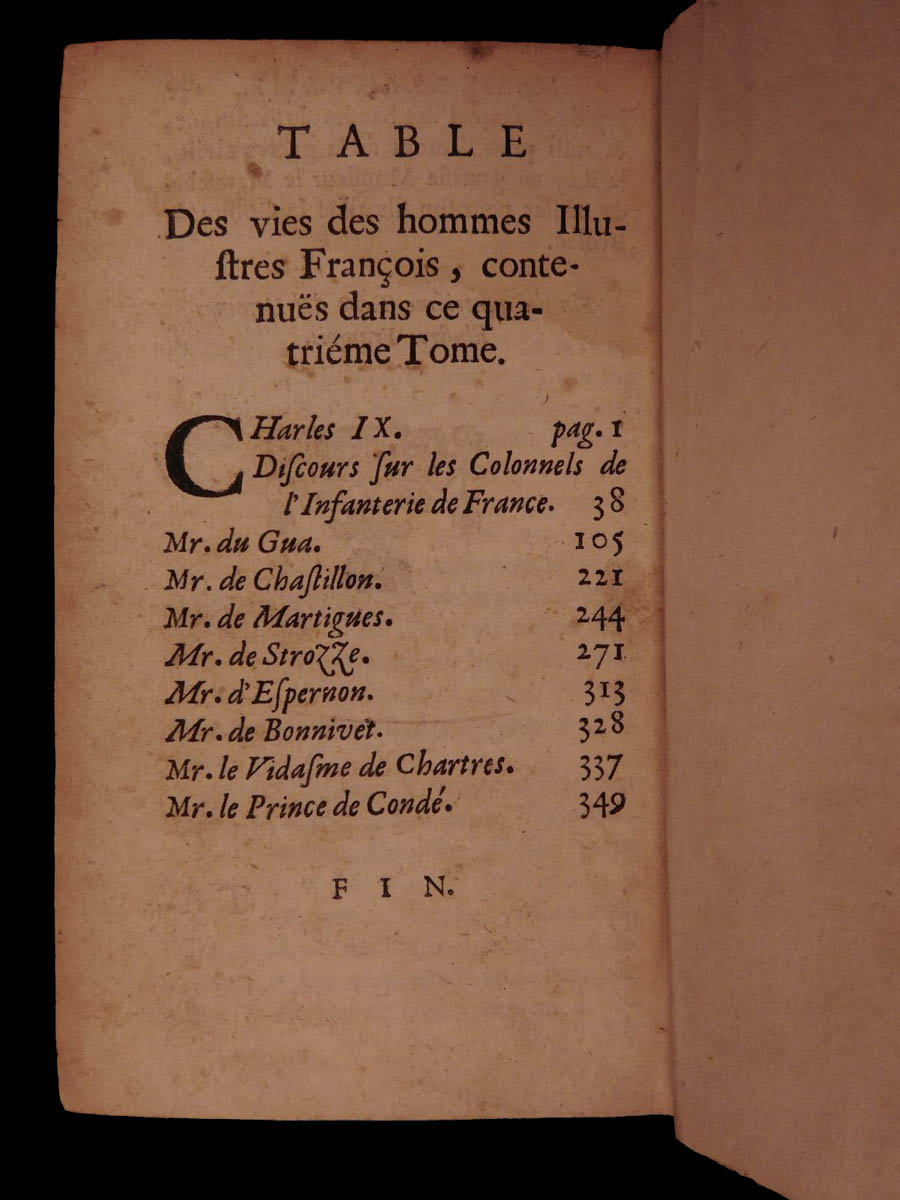 TABLE
Des vies des hommes Illu-
ſtres François, conte-
nuës dans ce qua-
triéme Tome.
CHarles IX. pag. 1
Diſcours ſur les Colonnels de
l'Infanterie de France. 38
Mr. du Gua. 105
Mr. de Chaſtillon. 221
Mr. de Martigues. 244
Mr. de Strozze. 271
Mr. d'Eſpernon. 313
Mr. de Bonnivet. 328
Mr. le Vidaſme de Chartres. 337
Mr. le Prince de Condé. 349
FIN.